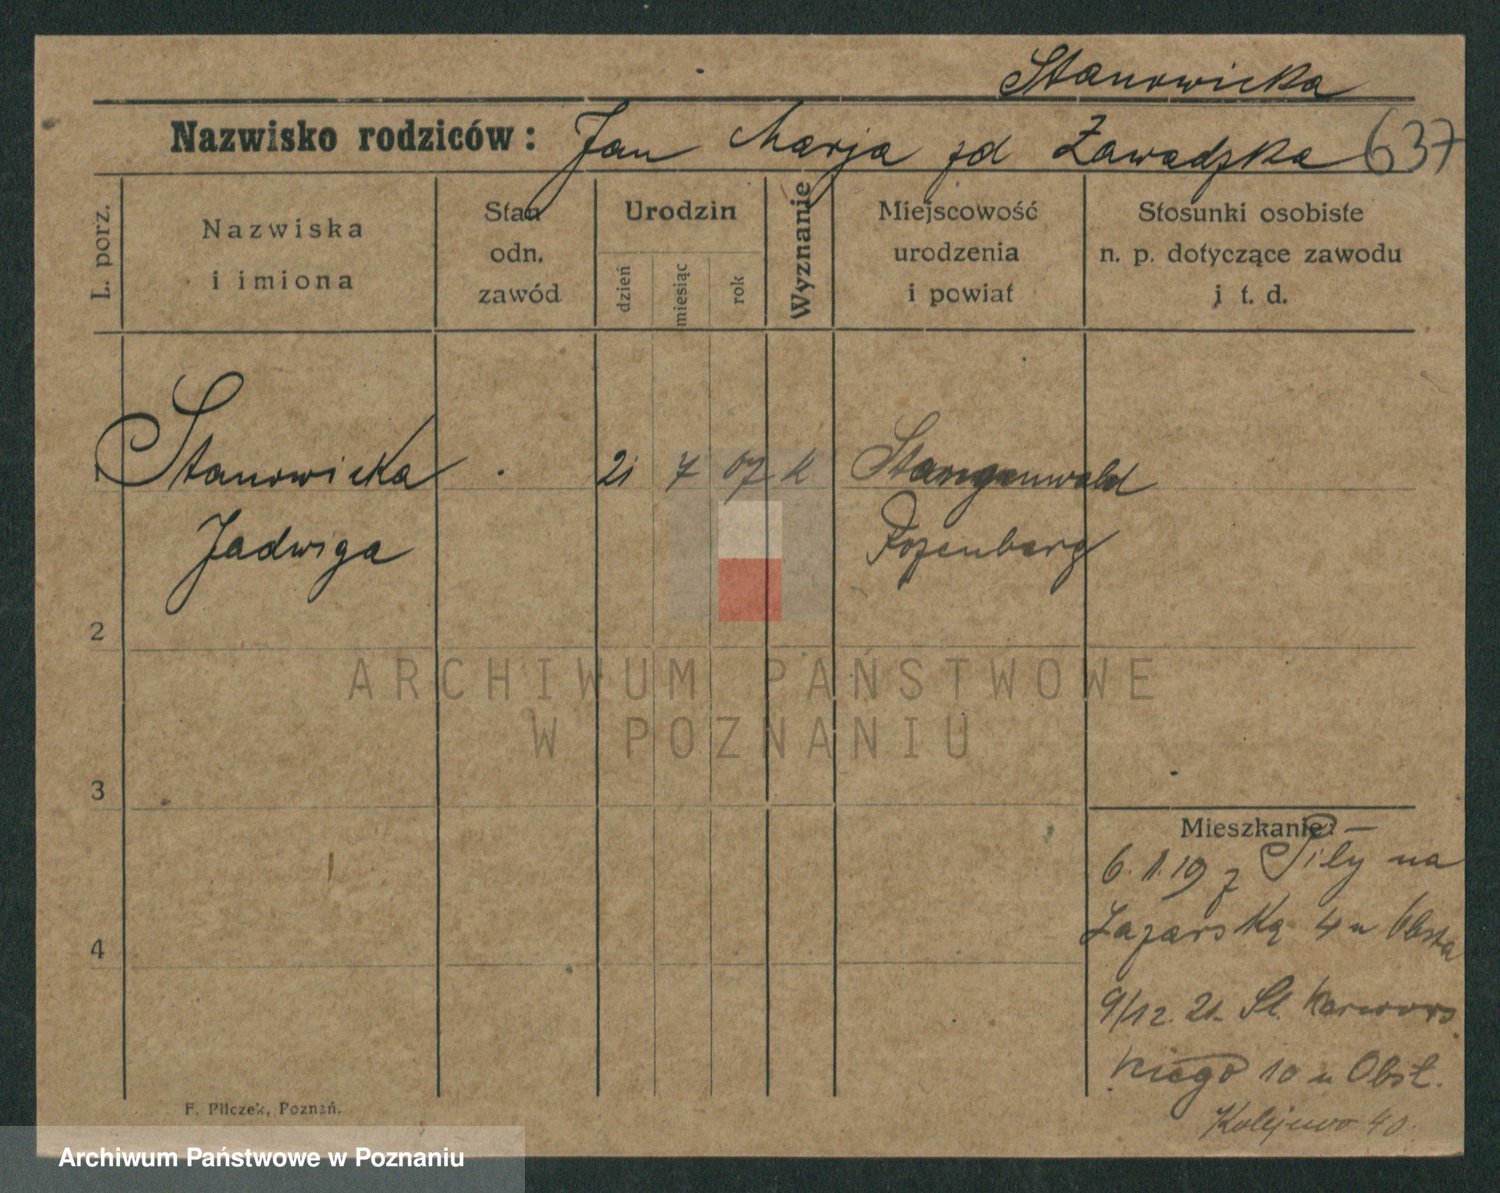 Stanowicka
Nazwisko rodziców: Jan Marja zd Zawadzka 637
L. porz.
Nazwiska
i imiona
Stan
odn.
zawód
Urodzin
dzień
miesiąc
rok
Wyznanie
Miejscowość
urodzenia
i powiat
Stosunki osobiste
n. p. dotyczące zawodu
i t. d.
1 Stanowicka 21 7 07 k Stangenwald
Jadwiga Rozenberg
2
ARCHIWUM PAŃSTWOWE
W POZNANIU
3
Mieszkanie:
6.11.19 z Piły na
Łazarską 4 u
4
9/12.21
10 u Obst.
40.
F. Pilczek, Poznań.
Archiwum Państwowe w Poznaniu